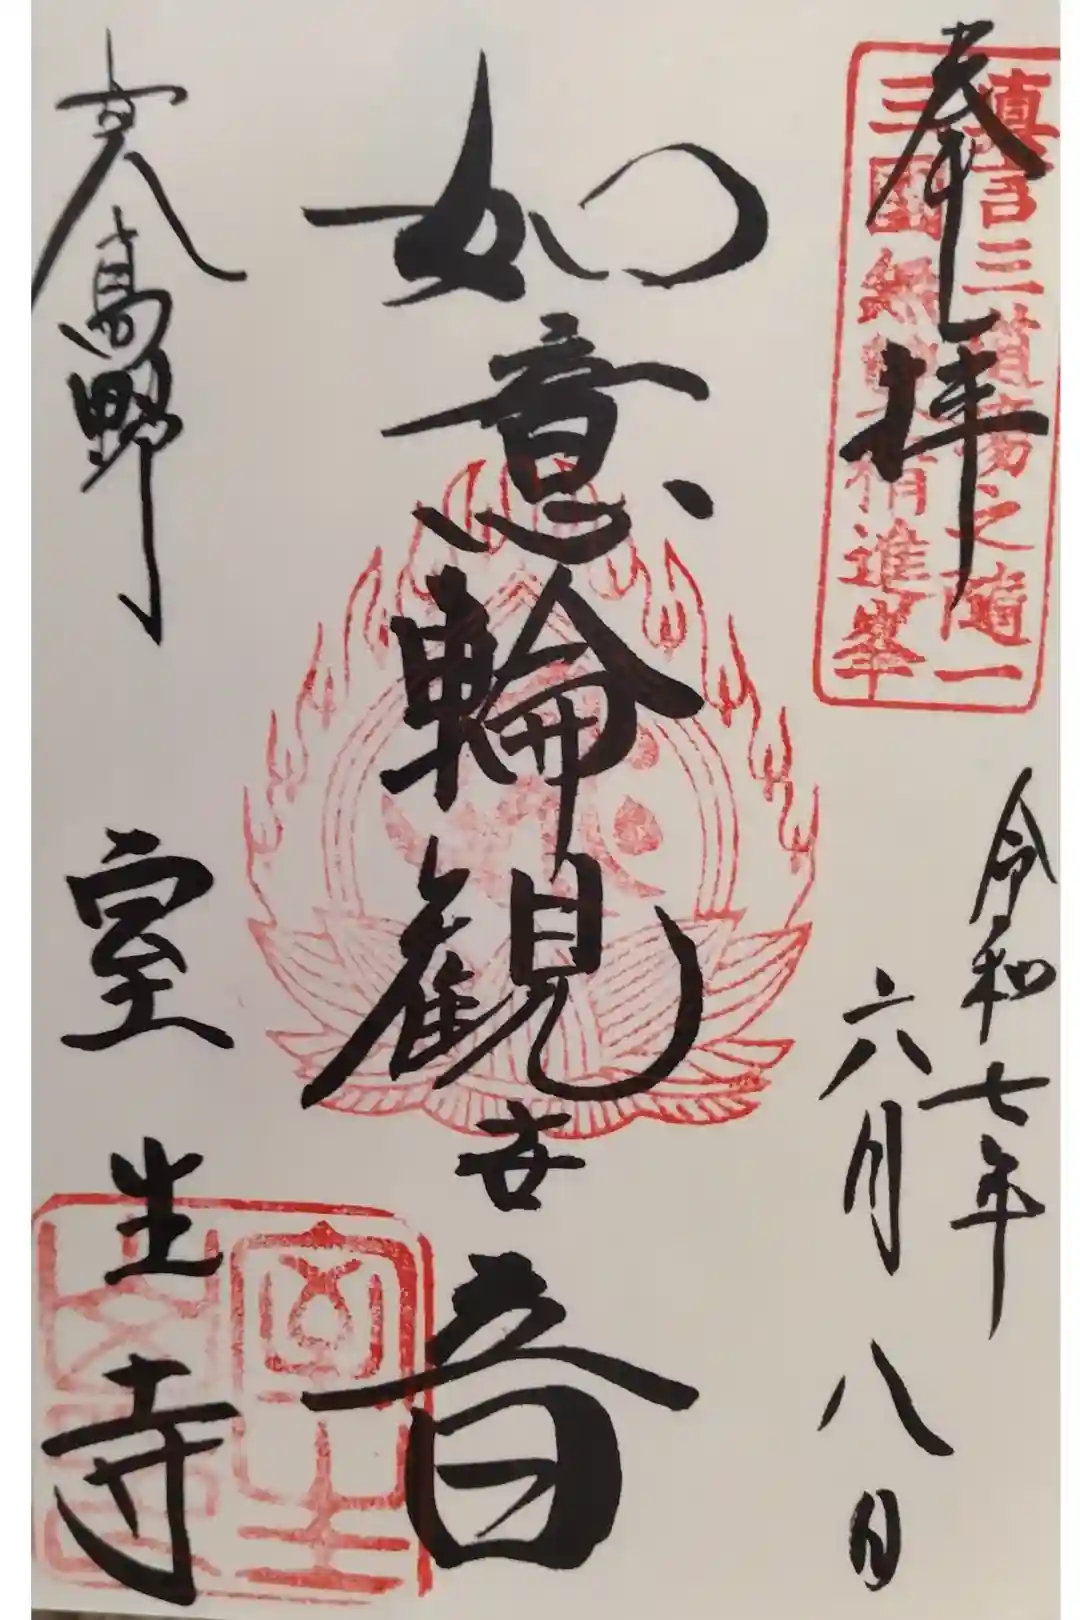 奉拝
眞言三道場之隨一
三國 精進峯
令和七年
六月八日
如意輪観世音
女人高野
室生寺